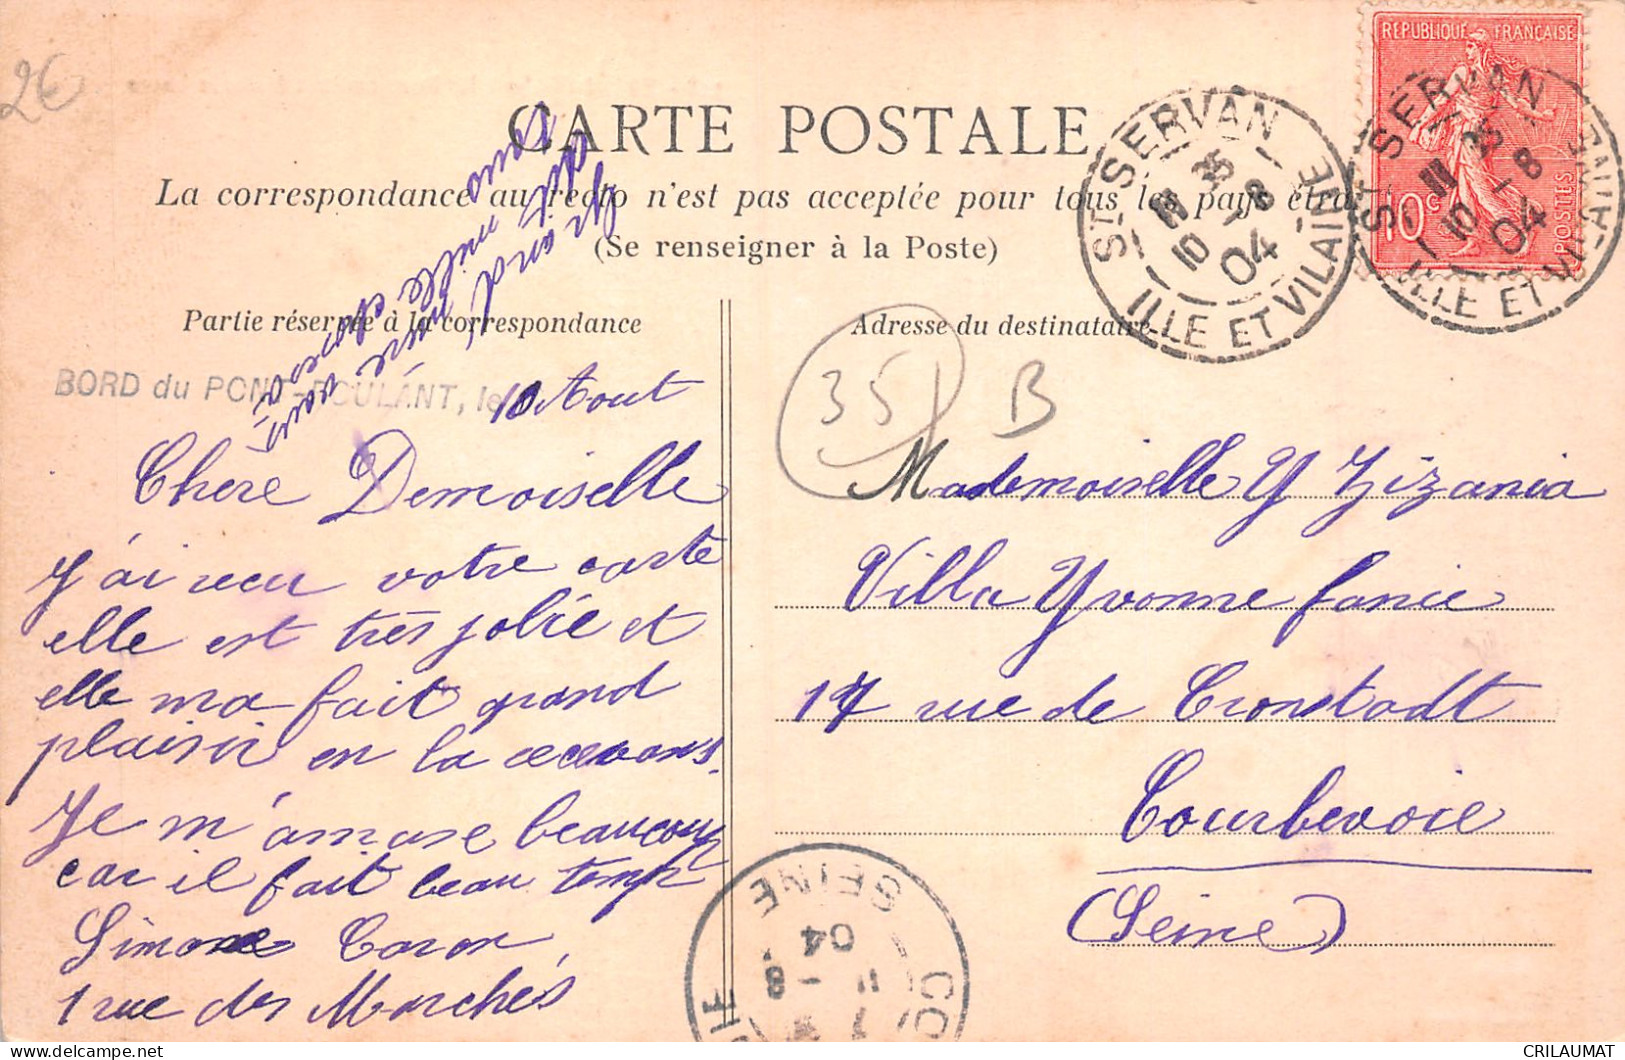 2€
CARTE POSTALE
La correspondance au recto n'est pas acceptée pour tous les pays étra
(Se renseigner à la Poste)
Partie réservée à la correspondance
Adresse du destinataire
RÉPUBLIQUE FRANÇAISE
10c
POSTES
ST SERVAN
10 - 8
04
ILLE ET VILAINE
ST SERVAN
10 - 8
04
ILLE ET VILAINE
BORD du PONT-ROULANT, le
10 Aout
Chère Demoiselle
J'ai recu votre carte
elle est très jolie et
elle ma fait grand
plaisir en la
Je m'amuse beaucoup
car il fait beau temps
Simone Caron
1 rue des Marchés
grand
mille choses
35
B
Mademoiselle Y Zizania
Villa Yvonne fanie
17 rue de Cronstadt
Courbevoie
(Seine)
SEINE
04
11 - 8
CO
IE
CRILAUMAT